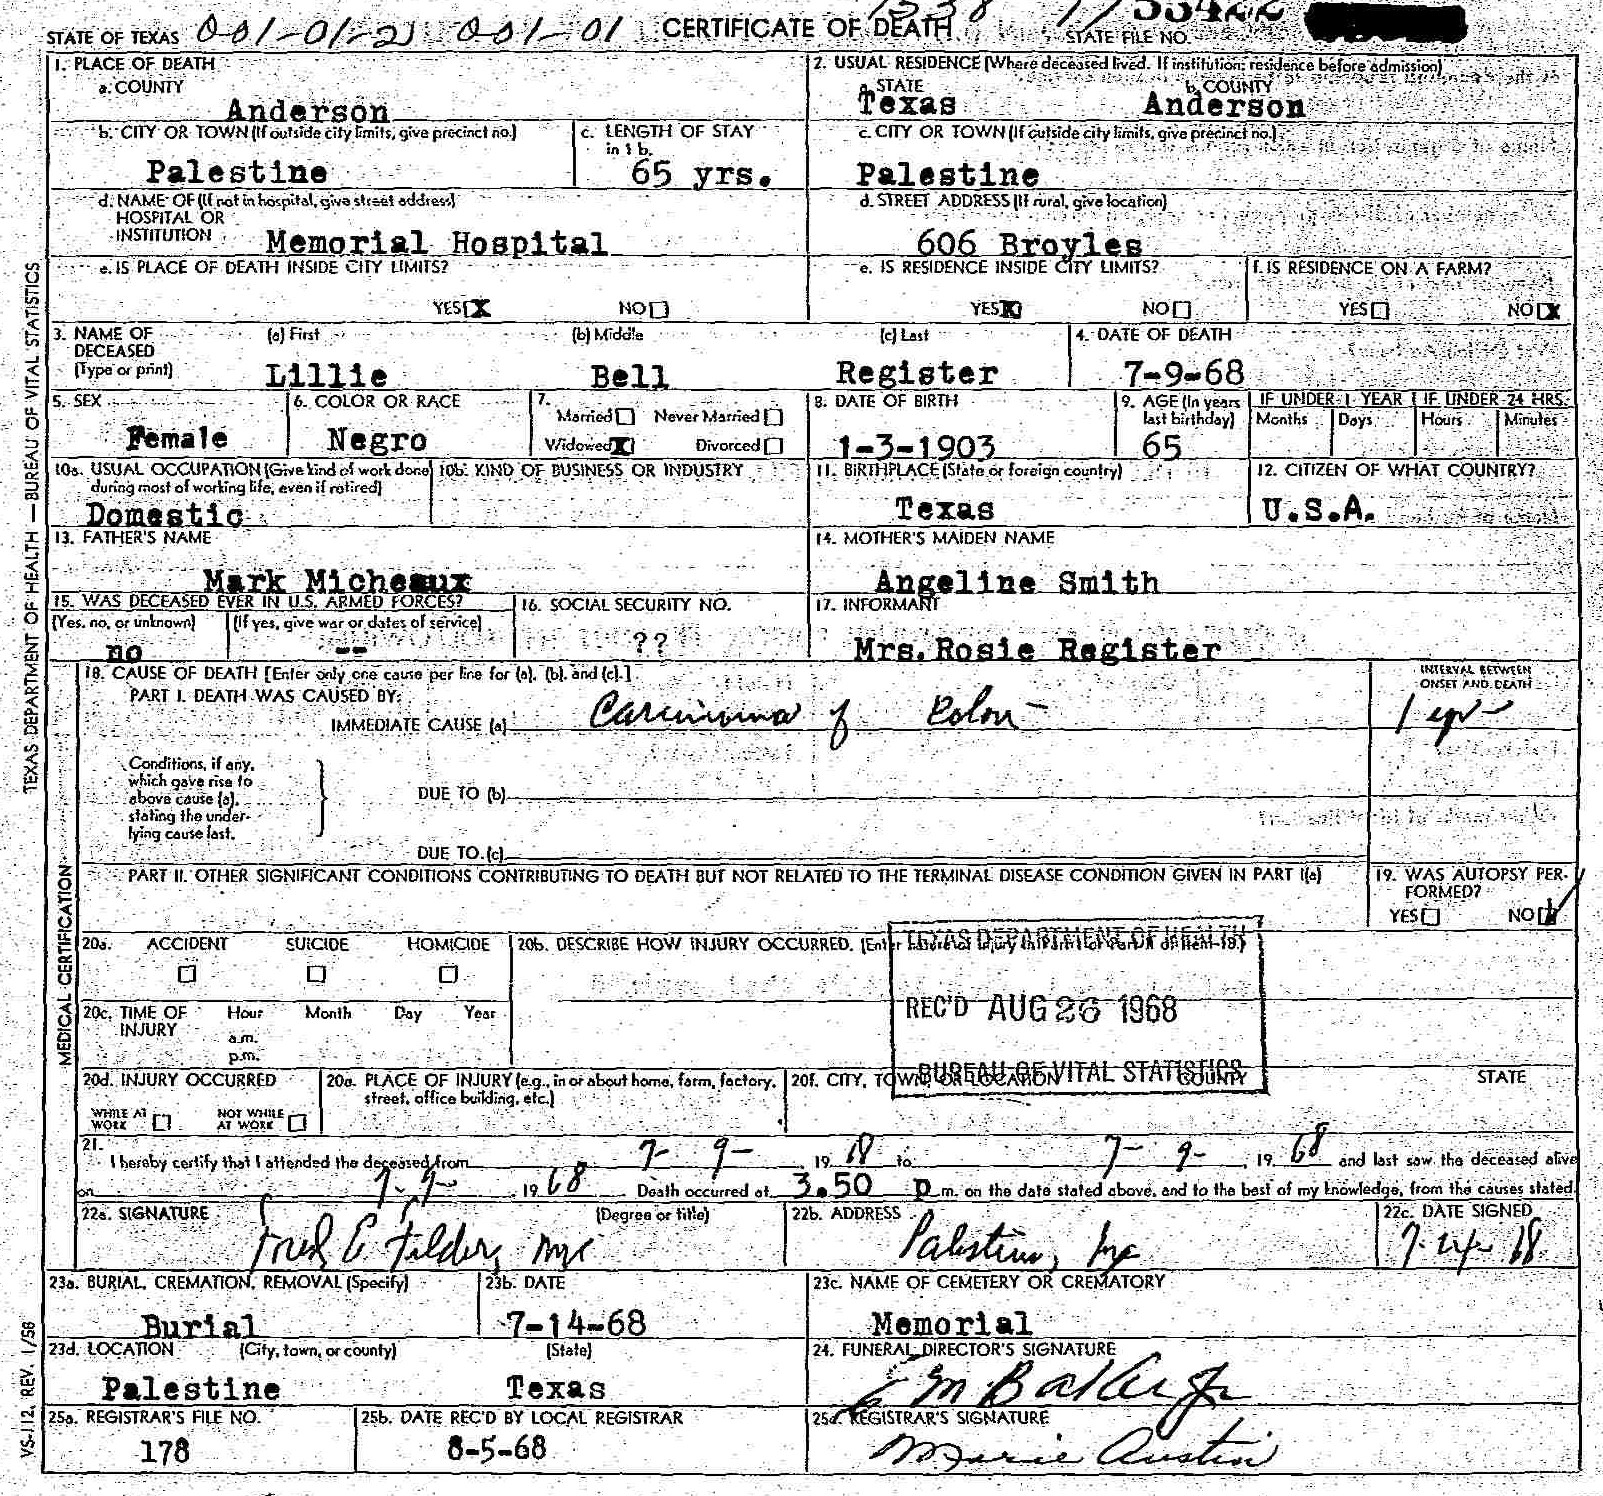 STATE OF TEXAS 001-01-21 001-01 CERTIFICATE OF DEATH STATE FILE NO.
1. PLACE OF DEATH
a. COUNTY
Anderson
2. USUAL RESIDENCE (Where deceased lived. If institution: residence before admission)
a. STATE b. COUNTY
Texas Anderson
b. CITY OR TOWN (If outside city limits, give precinct no.)
Palestine
c. LENGTH OF STAY
in 1 b.
65 yrs.
c. CITY OR TOWN (If outside city limits, give precinct no.)
Palestine
d. NAME OF (If not in hospital, give street address)
HOSPITAL OR
INSTITUTION Memorial Hospital
d. STREET ADDRESS (If rural, give location)
606 Broyles
e. IS PLACE OF DEATH INSIDE CITY LIMITS?
YES X NO
e. IS RESIDENCE INSIDE CITY LIMITS?
YES X NO
f. IS RESIDENCE ON A FARM?
YES NO X
3. NAME OF (a) First (b) Middle (c) Last
DECEASED
(Type or print) Lillie Bell Register
4. DATE OF DEATH
7-9-68
5. SEX
Female
6. COLOR OR RACE
Negro
7.
Married Never Married
Widowed X Divorced
8. DATE OF BIRTH
1-3-1903
9. AGE (In years
last birthday)
65
IF UNDER 1 YEAR IF UNDER 24 HRS.
Months Days Hours Minutes
10a. USUAL OCCUPATION (Give kind of work done
during most of working life, even if retired)
Domestic
10b. KIND OF BUSINESS OR INDUSTRY
11. BIRTHPLACE (State or foreign country)
Texas
12. CITIZEN OF WHAT COUNTRY?
U.S.A.
13. FATHER'S NAME
Mark Micheaux
14. MOTHER'S MAIDEN NAME
Angeline Smith
15. WAS DECEASED EVER IN U.S. ARMED FORCES?
(Yes, no, or unknown) (If yes, give war or dates of service)
no --
16. SOCIAL SECURITY NO.
??
17. INFORMANT
Mrs. Rosie Register
18. CAUSE OF DEATH [Enter only one cause per line for (a), (b), and (c).]
PART I. DEATH WAS CAUSED BY:
IMMEDIATE CAUSE (a) Carcinoma of Colon
INTERVAL BETWEEN
ONSET AND DEATH
1 yr
Conditions, if any,
which gave rise to
above cause (a),
stating the under-
lying cause last.
DUE TO (b)
DUE TO (c)
PART II. OTHER SIGNIFICANT CONDITIONS CONTRIBUTING TO DEATH BUT NOT RELATED TO THE TERMINAL DISEASE CONDITION GIVEN IN PART I(a)
19. WAS AUTOPSY PER-
FORMED?
YES NO
20a. ACCIDENT SUICIDE HOMICIDE
20b. DESCRIBE HOW INJURY OCCURRED.
TEXAS DEPARTMENT OF HEALTH
REC'D AUG 26 1968
BUREAU OF VITAL STATISTICS
20c. TIME OF Hour Month Day Year
INJURY a.m.
p.m.
20d. INJURY OCCURRED
WHILE AT NOT WHILE
WORK AT WORK
20e. PLACE OF INJURY (e.g., in or about home, farm, factory,
street, office building, etc.)
20f. CITY, TOWN, OR LOCATION COUNTY STATE
21.
I hereby certify that I attended the deceased from 7-9-, 19 68 to 7-9-, 19 68 and last saw the deceased alive
on 7-9-, 19 68 Death occurred at 3.50 p m. on the date stated above, and to the best of my knowledge, from the causes stated.
22a. SIGNATURE (Degree or title)
Fred E Felder, MD
22b. ADDRESS
Palestine, Tex
22c. DATE SIGNED
7-24-68
23a. BURIAL, CREMATION, REMOVAL (Specify)
Burial
23b. DATE
7-14-68
23c. NAME OF CEMETERY OR CREMATORY
Memorial
23d. LOCATION (City, town, or county) (State)
Palestine Texas
24. FUNERAL DIRECTOR'S SIGNATURE
E M Baker Jr
25a. REGISTRAR'S FILE NO.
178
25b. DATE REC'D BY LOCAL REGISTRAR
8-5-68
25c. REGISTRAR'S SIGNATURE
Marie Austin
TEXAS DEPARTMENT OF HEALTH — BUREAU OF VITAL STATISTICS
MEDICAL CERTIFICATION
VS-112, REV. 1/58